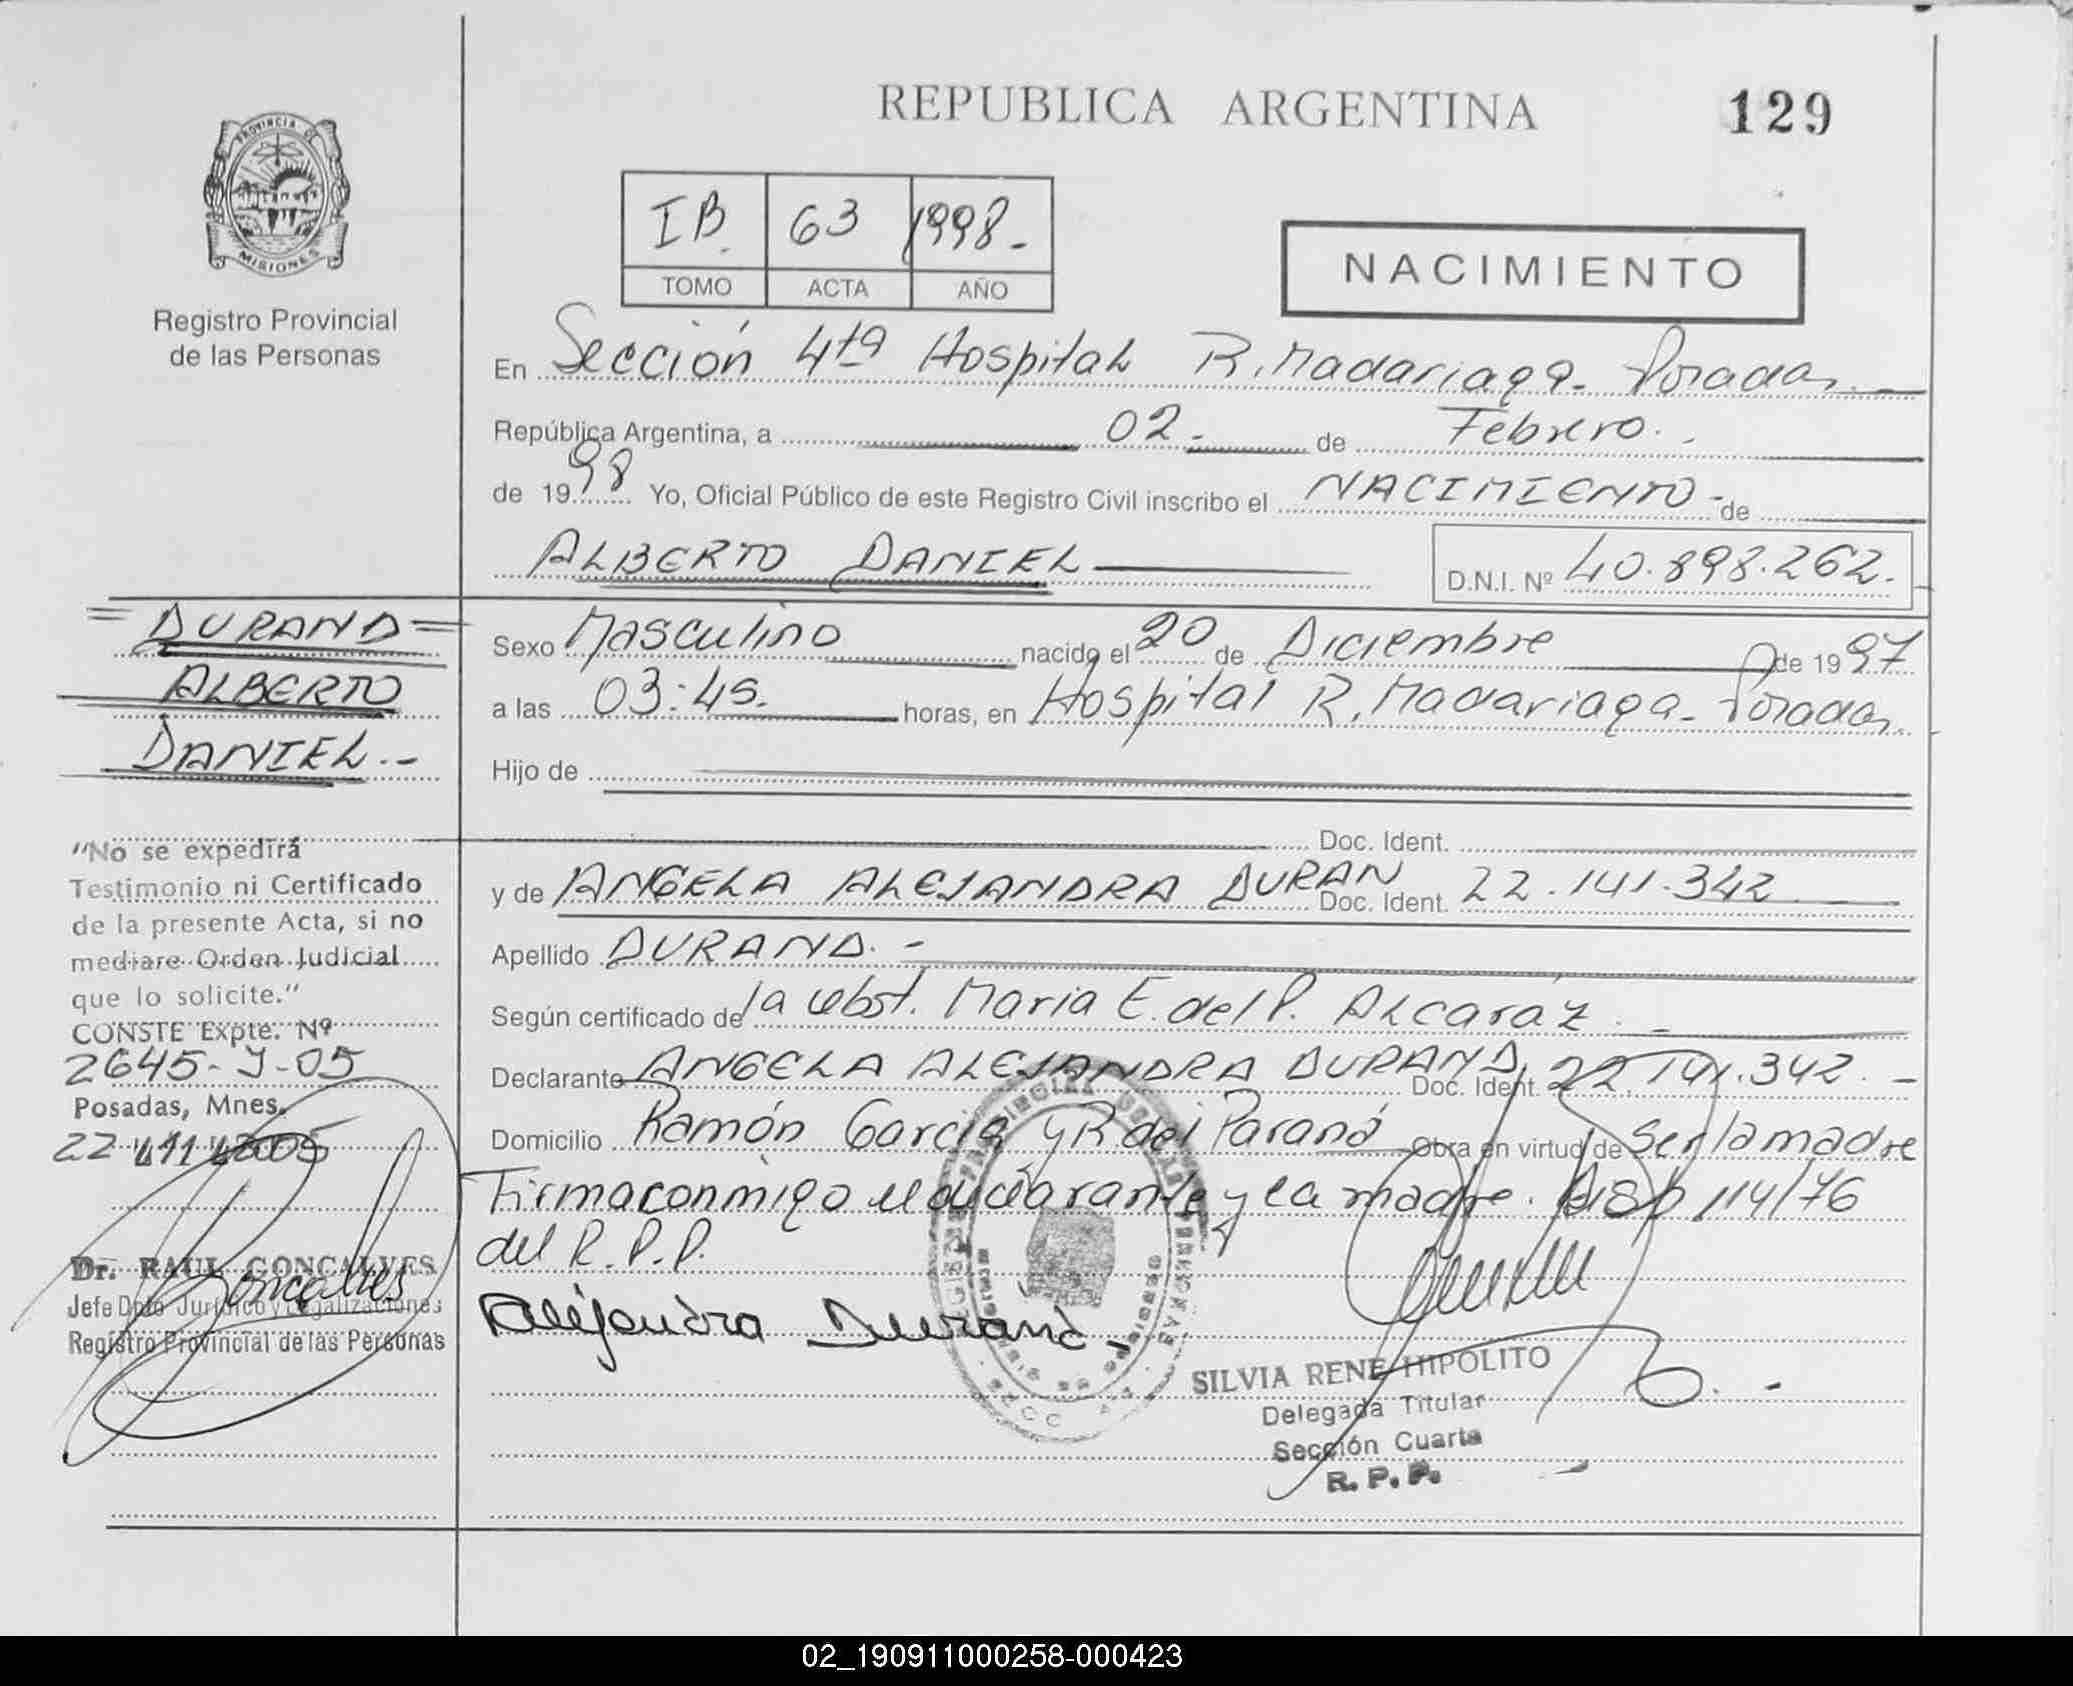 REPUBLICA ARGENTINA
129
PROVINCIA DE
MISIONES
Registro Provincial
de las Personas
IB. 63 1998.-
TOMO ACTA AÑO
NACIMIENTO
En Sección 4ta Hospital R. Madariaga- Posadas.-
República Argentina, a 02.- de Febrero.
de 1998 Yo, Oficial Público de este Registro Civil inscribo el NACIMIENTO - de
ALBERTO DANIEL
D.N.I. Nº 40.898.262.-
= DURAND =
ALBERTO
DANIEL.-
Sexo Masculino nacido el 20 de Diciembre de 1997
a las 03:45. horas, en Hospital R. Madariaga- Posadas.
Hijo de
Doc. Ident.
y de ANGELA ALEJANDRA DURAN Doc. Ident. 22.141.342
Apellido DURAND.-
Según certificado de la obst. Maria E. del P. Alcaráz.-
Declarante ANGELA ALEJANDRA DURAND Doc. Ident. 22.141.342.-
Domicilio Ramón García y R del Paraná Obra en virtud de Ser la madre
Firma conmigo el declarante y la madre. Disp 114/76
del R.P.P.
Alejandra Durand.-
SILVIA RENE HIPOLITO
Delegada Titular
Sección Cuarta
R. P. P.
"No se expedirá
Testimonio ni Certificado
de la presente Acta, si no
mediare Orden Judicial
que lo solicite."
CONSTE Expte. Nº
2645-J-05
Posadas, Mnes.
22 11 2005
Goncalves
Dr. RAUL GONCALVES
Jefe Dpto Jurídico y Legalizaciones
Registro Provincial de las Personas
02_190911000258-000423